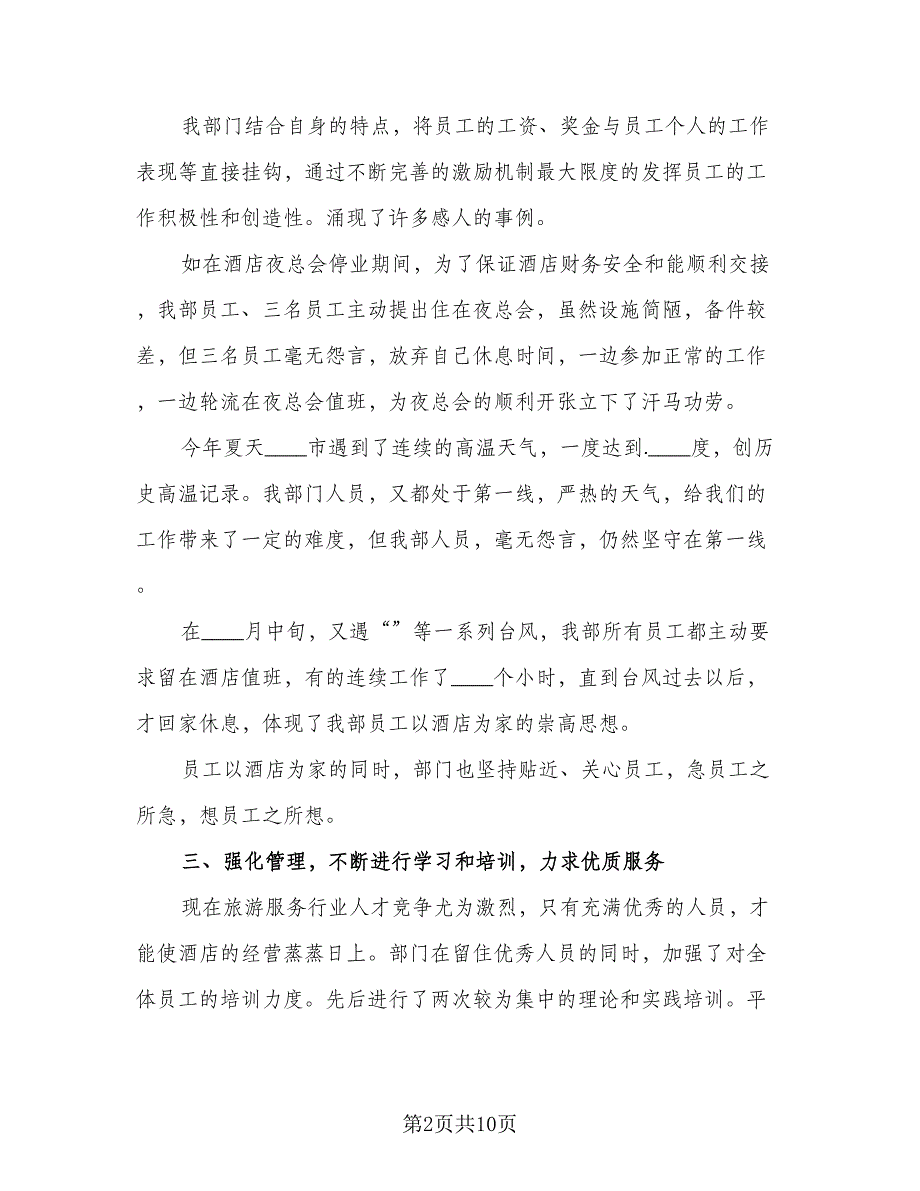 我部门结合自身的特点，将员工的工资、奖金与员工个人的工作
表现等直接挂钩，通过不断完善的激励机制最大限度的发挥员工的工
作积极性和创造性。涌现了许多感人的事例。
如在酒店夜总会停业期间，为了保证酒店财务安全和能顺利交接
，我部员工、三名员工主动提出住在夜总会，虽然设施简陋，备件较
差，但三名员工毫无怨言，放弃自己休息时间，一边参加正常的工作
，一边轮流在夜总会值班，为夜总会的顺利开张立下了汗马功劳。
今年夏天____市遇到了连续的高温天气，一度达到.____度，创历
史高温记录。我部门人员，又都处于第一线，严热的天气，给我们的
工作带来了一定的难度，但我部人员，毫无怨言，仍然坚守在第一线
。
在____月中旬，又遇“”等一系列台风，我部所有员工都主动要
求留在酒店值班，有的连续工作了____个小时，直到台风过去以后，
才回家休息，体现了我部员工以酒店为家的崇高思想。
员工以酒店为家的同时，部门也坚持贴近、关心员工，急员工之
所急，想员工之所想。
三、强化管理，不断进行学习和培训，力求优质服务
现在旅游服务行业人才竞争尤为激烈，只有充满优秀的人员，才
能使酒店的经营蒸蒸日上。部门在留住优秀人员的同时，加强了对全
体员工的培训力度。先后进行了两次较为集中的理论和实践培训。平
第2页共10页